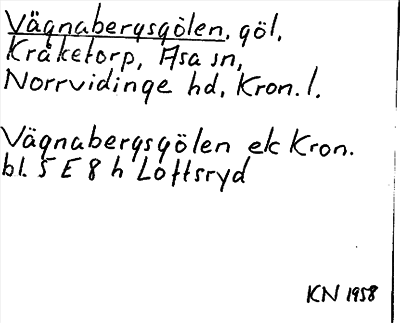 Vägnabergsgölen, göl,
Kråketorp, Asa sn,
Norrvidinge hd, Kron. l.
Vägnabergsgölen ek Kron.
bl. 5 E 8 h Loftsryd
KN 1958